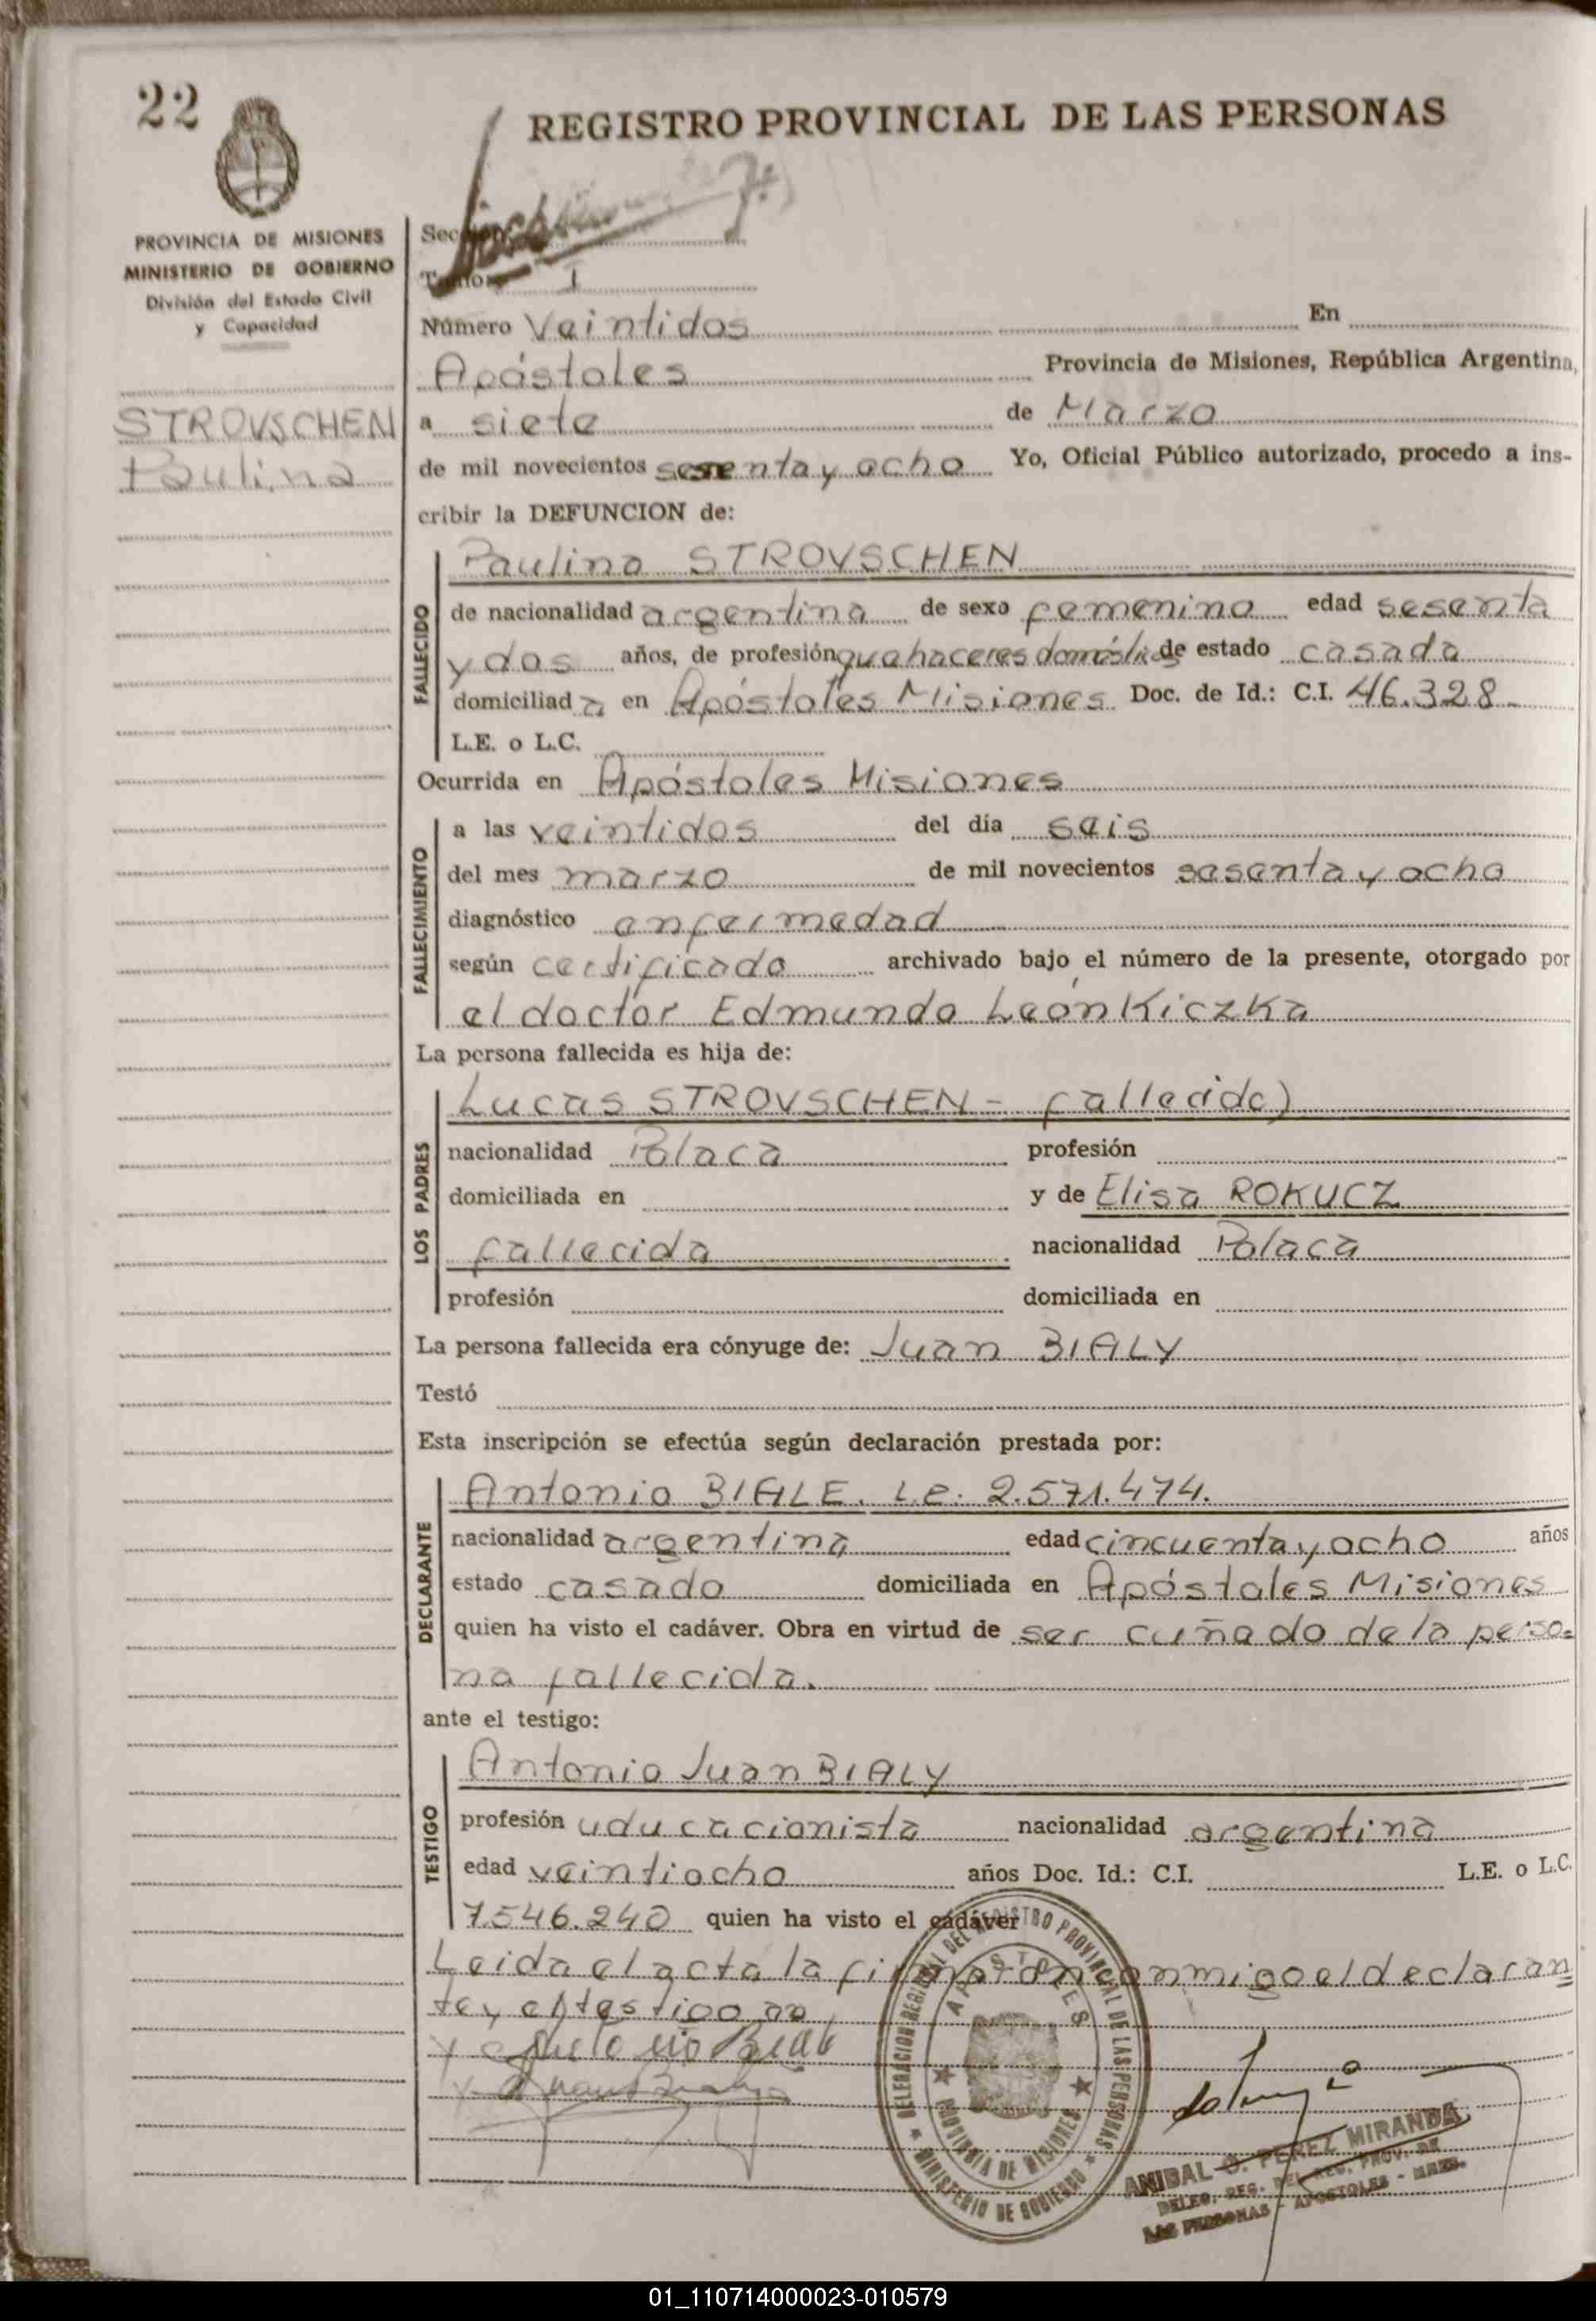 22
REGISTRO PROVINCIAL DE LAS PERSONAS
PROVINCIA DE MISIONES
MINISTERIO DE GOBIERNO
División del Estado Civil
y Capacidad
STROVSCHEN
Paulina
Sección
Tomo I
Número Veintidos En
Apóstoles Provincia de Misiones, República Argentina,
a siete de Marzo
de mil novecientos sesenta y ocho Yo, Oficial Público autorizado, procedo a ins-
cribir la DEFUNCION de:
FALLECIDO
Paulina STROVSCHEN
de nacionalidad argentina de sexo femenino edad sesenta
y dos años, de profesión quehaceres domésticos de estado casada
domiciliad a en Apóstoles Misiones Doc. de Id.: C.I. 46.328-
L.E. o L.C.
Ocurrida en Apóstoles Misiones
FALLECIMIENTO
a las veintidos del día seis
del mes marzo de mil novecientos sesenta y ocho
diagnóstico enfermedad
según certificado archivado bajo el número de la presente, otorgado por
el doctor Edmundo León Kiczka
La persona fallecida es hija de:
LOS PADRES
Lucas STROVSCHEN- fallecido)
nacionalidad Polaca profesión
domiciliada en y de Elisa ROKUCZ
fallecida nacionalidad Polaca
profesión domiciliada en
La persona fallecida era cónyuge de: Juan BIALY
Testó
Esta inscripción se efectúa según declaración prestada por:
DECLARANTE
Antonio BIALE. L.e. 2.571.474.
nacionalidad argentina edad cincuenta y ocho años
estado casado domiciliada en Apóstoles Misiones
quien ha visto el cadáver. Obra en virtud de ser cuñado de la perso=
na fallecida.
ante el testigo:
TESTIGO
Antonio Juan BIALY
profesión uducacionista nacionalidad argentina
edad veintiocho años Doc. Id.: C.I. L.E. o L.C.
7.546.240 quien ha visto el cadáver
Leida el acta la firmaron conmigo el declaran=
te y el testigo
DELEGACION REGIONAL DEL REGISTRO PROVINCIAL DE LAS PERSONAS
APOSTOLES
PROVINCIA DE MISIONES
MINISTERIO DE GOBIERNO
ANIBAL O. PEREZ MIRANDA
DELEG. REG. DEL REG. PROV. DE
LAS PERSONAS - APOSTOLES - MNES.
01_110714000023-010579